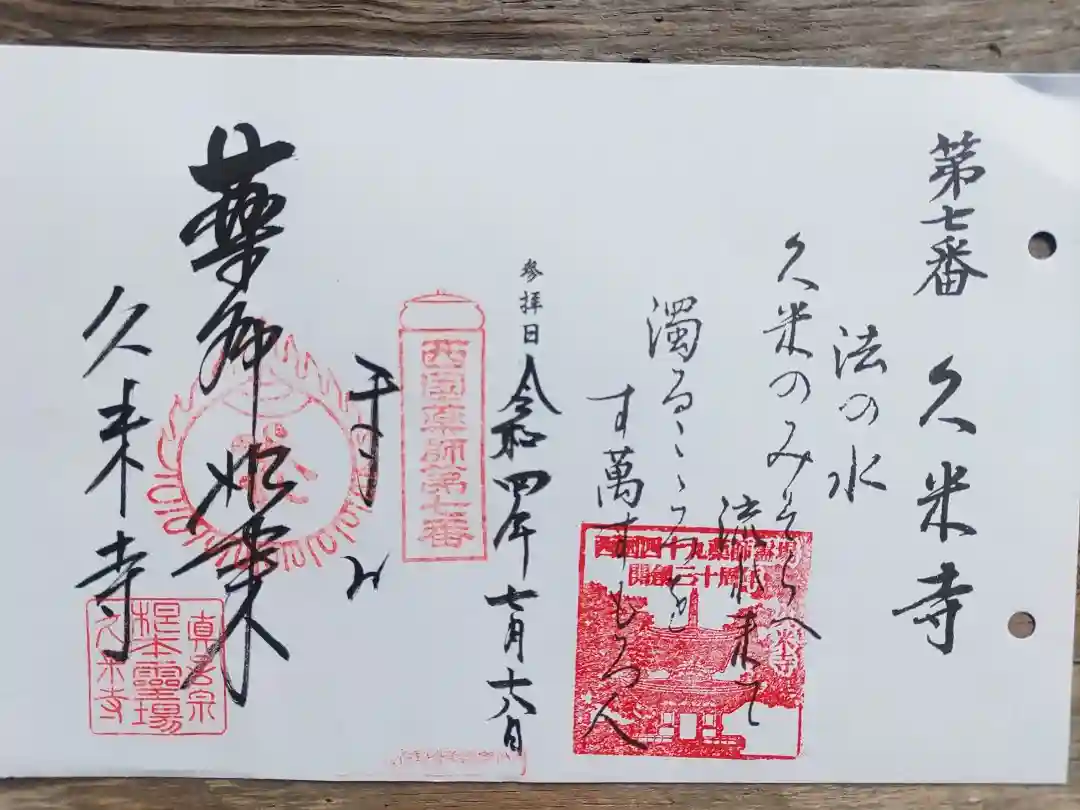 第七番 久米寺
法の水
久米のみそらへ
流れ来て
濁るこゝろを
す萬すもろ人
西国四十九薬師霊場
開創三十周年
米寺
参拝日 令和四年七月十六日
西國薬師第七番
薬師如来
久米寺
真言宗
根本霊場
久米寺